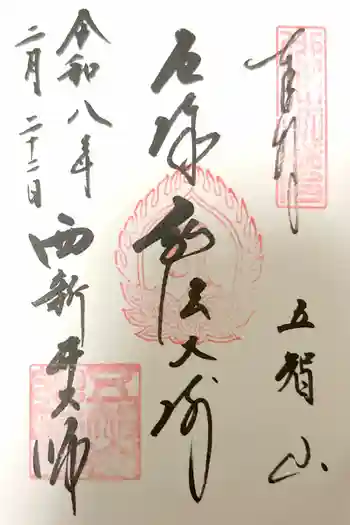 奉拝
五智山
厄除
弘法大師
西新井大師
令和八年
二月二十二日